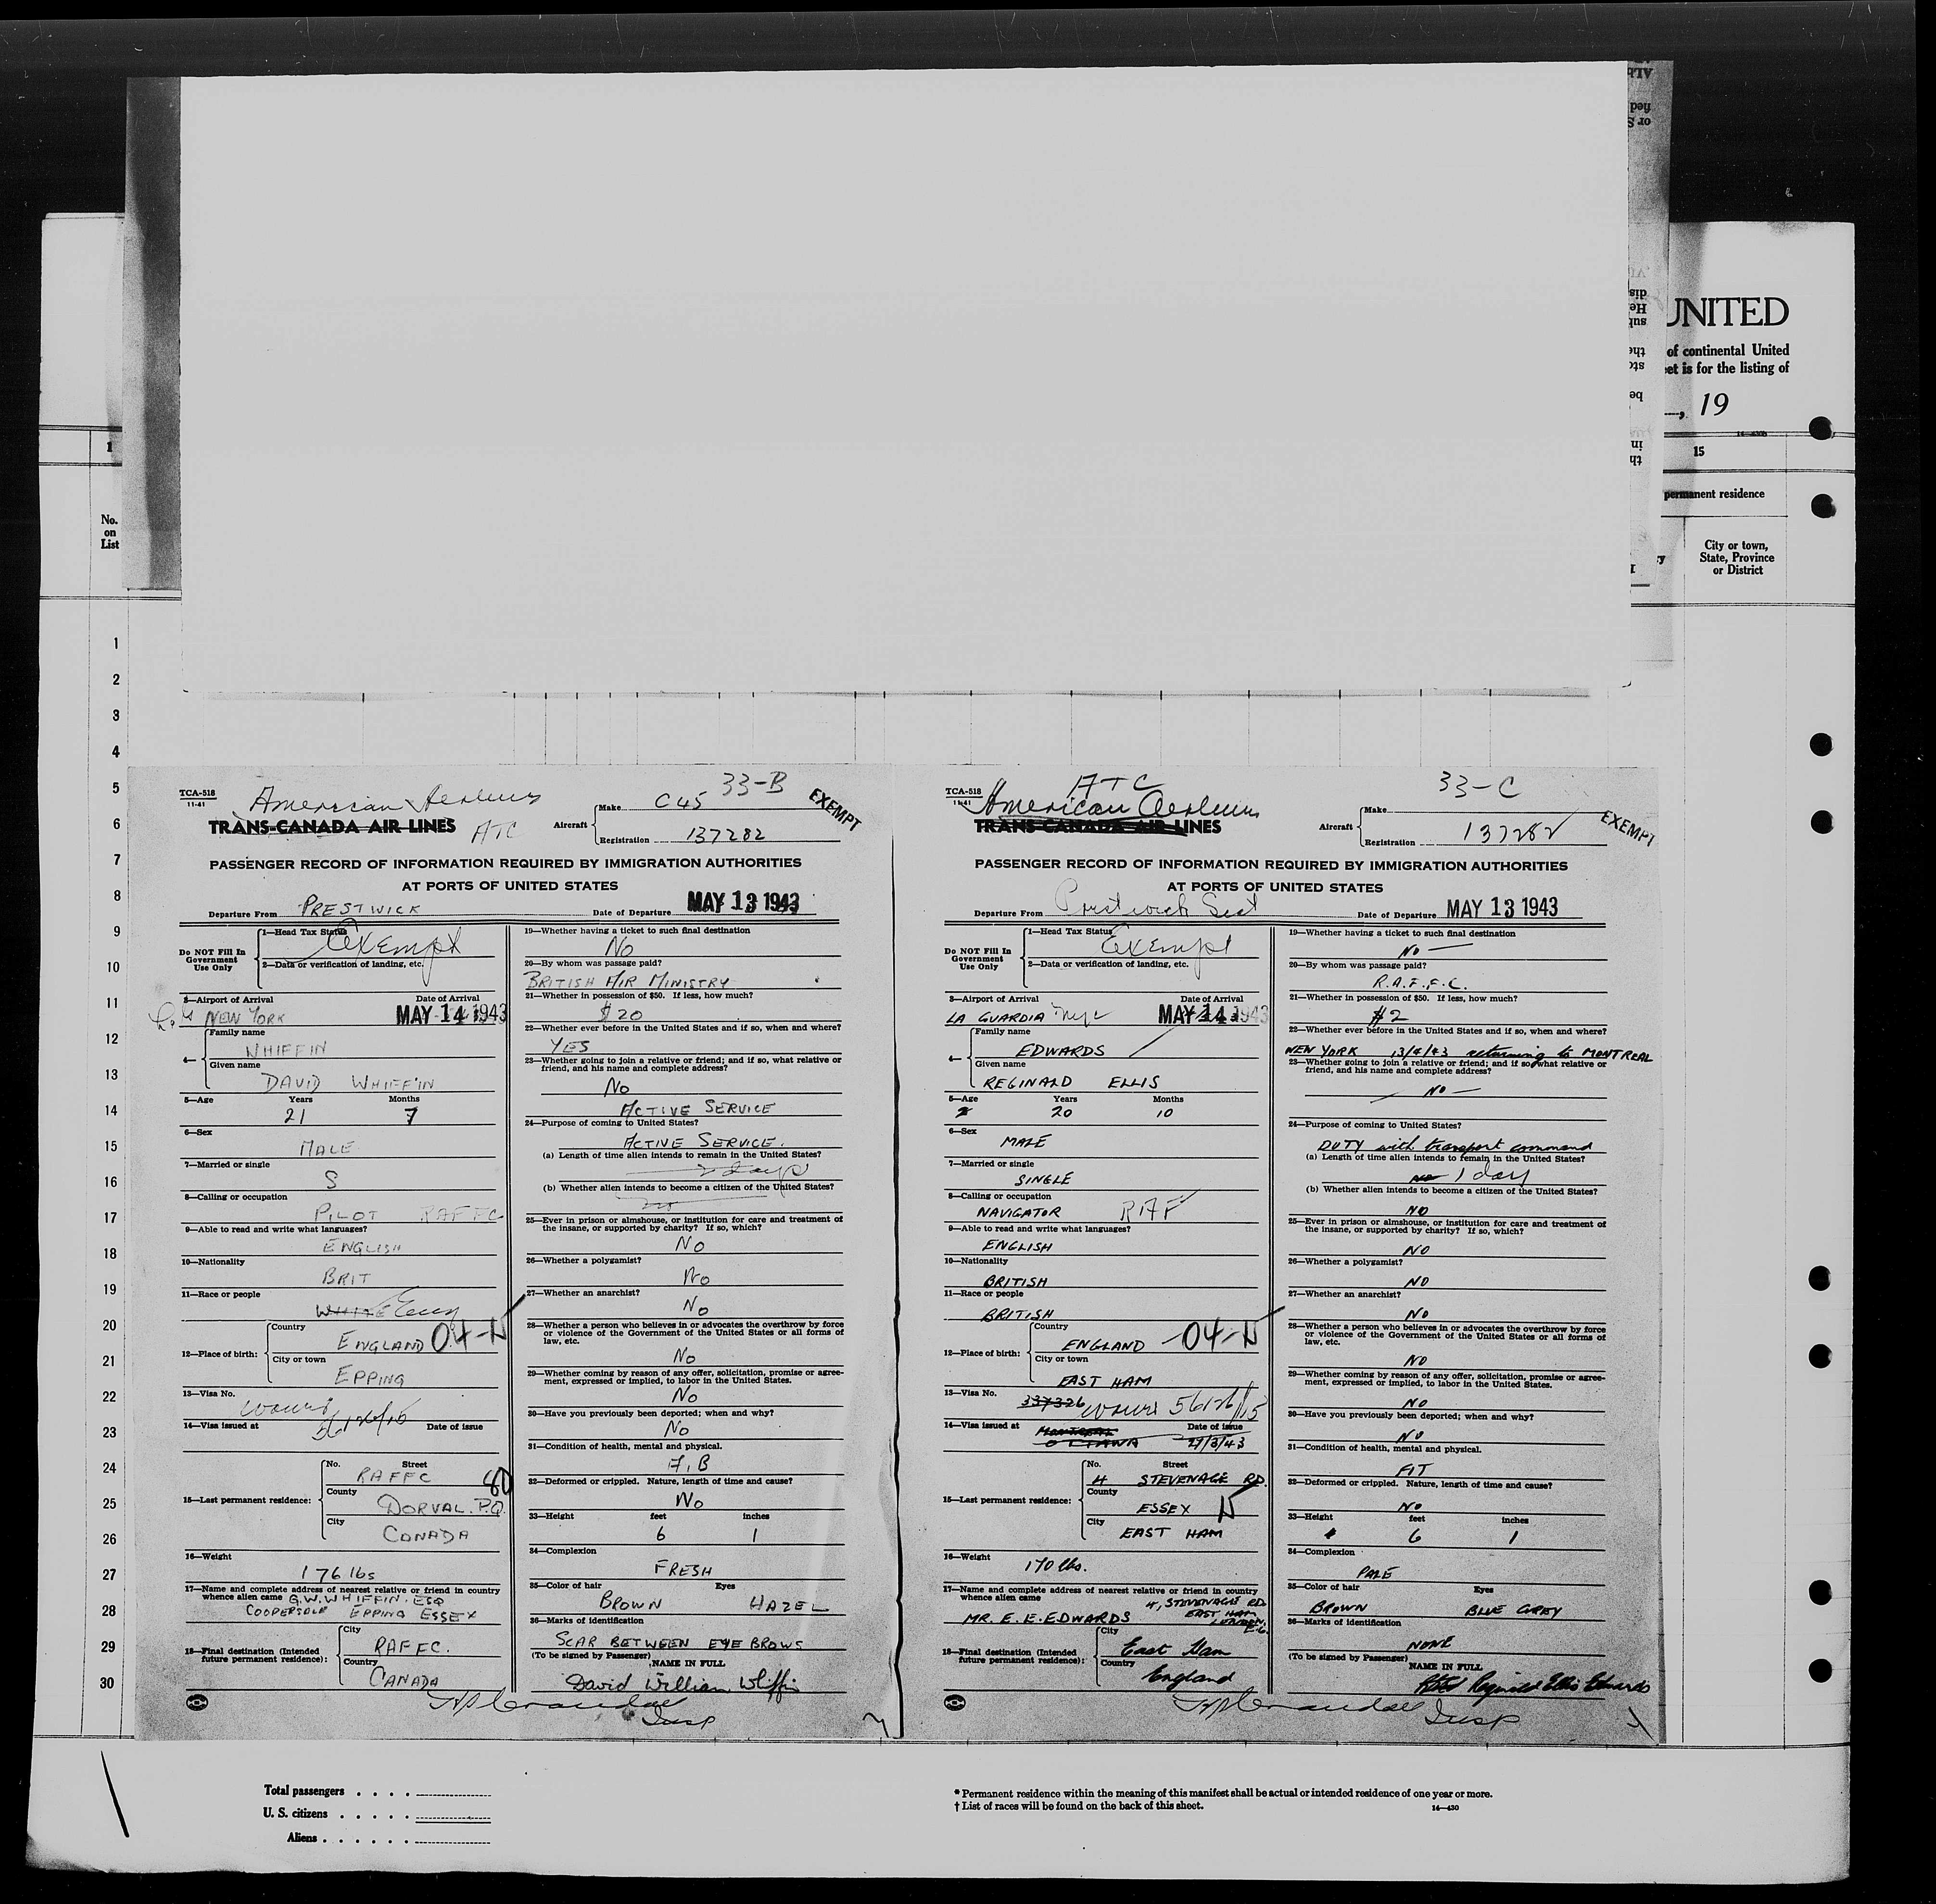 UNITED
of continental United
et is for the listing of
, 19
15
permanent residence
No.
on
List
City or town,
State, Province
or District
1
2
3
4
5
6
7
8
9
10
11
12
13
14
15
16
17
18
19
20
21
22
23
24
25
26
27
28
29
30
TCA-518
11-41
American Airlines
33-B
EXEMPT
TRANS-CANADA AIR LINES ATC
Aircraft
Make C45
Registration 137282
PASSENGER RECORD OF INFORMATION REQUIRED BY IMMIGRATION AUTHORITIES
AT PORTS OF UNITED STATES
Departure From PRESTWICK Date of Departure MAY 13 1943
Do NOT Fill In
Government
Use Only
1—Head Tax Status
Exempt
2—Data or verification of landing, etc.
3—Airport of Arrival Date of Arrival
NEW YORK MAY 14 1943
4—
Family name
WHIFFIN
Given name
DAVID WHIFFIN
5—Age Years Months
21 7
6—Sex
MALE
7—Married or single
S
8—Calling or occupation
PILOT RAFFC
9—Able to read and write what languages?
ENGLISH
10—Nationality
BRIT
11—Race or people
WHITE Eng
12—Place of birth:
Country
ENGLAND 04-N
City or town
EPPING
13—Visa No.
14—Visa issued at Date of issue
15—Last permanent residence:
No. Street
RAFFC 80
County
DORVAL. P.Q.
City
CANADA
16—Weight
176 lbs
17—Name and complete address of nearest relative or friend in country
whence alien came G.W. WHIFFIN. ESQ
COOPERSALE EPPING ESSEX
18—Final destination (Intended
future permanent residence):
City
RAFFC.
Country
CANADA
19—Whether having a ticket to such final destination
NO
20—By whom was passage paid?
BRITISH AIR MINISTRY
21—Whether in possession of $50. If less, how much?
$20
22—Whether ever before in the United States and if so, when and where?
YES
23—Whether going to join a relative or friend; and if so, what relative or
friend, and his name and complete address?
NO
ACTIVE SERVICE
24—Purpose of coming to United States?
ACTIVE SERVICE.
(a) Length of time alien intends to remain in the United States?
2 days
(b) Whether alien intends to become a citizen of the United States?
no
25—Ever in prison or almshouse, or institution for care and treatment of
the insane, or supported by charity? If so, which?
NO
26—Whether a polygamist?
NO
27—Whether an anarchist?
NO
28—Whether a person who believes in or advocates the overthrow by force
or violence of the Government of the United States or all forms of
law, etc.
NO
29—Whether coming by reason of any offer, solicitation, promise or agree-
ment, expressed or implied, to labor in the United States.
NO
30—Have you previously been deported; when and why?
NO
31—Condition of health, mental and physical.
32—Deformed or crippled. Nature, length of time and cause?
NO
33—Height feet inches
6 1
34—Complexion
FRESH
35—Color of hair Eyes
BROWN HAZEL
36—Marks of identification
SCAR BETWEEN EYE BROWS
(To be signed by Passenger)
NAME IN FULL
David William Whiffin
Crandall
Insp
TCA-518
11-41
ATC
American Airlines
33-C
EXEMPT
TRANS-CANADA AIR LINES
Aircraft
Make
Registration 137282
PASSENGER RECORD OF INFORMATION REQUIRED BY IMMIGRATION AUTHORITIES
AT PORTS OF UNITED STATES
Departure From Prestwick Scot Date of Departure MAY 13 1943
Do NOT Fill In
Government
Use Only
1—Head Tax Status
Exempt
2—Data or verification of landing, etc.
3—Airport of Arrival Date of Arrival
LA GUARDIA MAY 14 1943
4—
Family name
EDWARDS
Given name
REGINALD ELLIS
5—Age Years Months
20 10
6—Sex
MALE
7—Married or single
SINGLE
8—Calling or occupation
NAVIGATOR RAF
9—Able to read and write what languages?
ENGLISH
10—Nationality
BRITISH
11—Race or people
BRITISH
12—Place of birth:
Country
ENGLAND 04-N
City or town
EAST HAM
13—Visa No.
337326 56126/15
14—Visa issued at Date of issue
MONTREAL
OTTAWA 29/3/43
15—Last permanent residence:
No. Street
4 STEVENAGE RD.
County
ESSEX N
City
EAST HAM
16—Weight
170 lbs.
17—Name and complete address of nearest relative or friend in country
whence alien came 4, STEVENAGE RD
MR. E. E. EDWARDS EAST HAM
LONDON, E.6.
18—Final destination (Intended
future permanent residence):
City
East Ham
Country
England
19—Whether having a ticket to such final destination
NO —
20—By whom was passage paid?
R.A.F.F.C.
21—Whether in possession of $50. If less, how much?
$2
22—Whether ever before in the United States and if so, when and where?
NEW YORK 13/4/43 returning to MONTREAL
23—Whether going to join a relative or friend; and if so, what relative or
friend, and his name and complete address?
— NO —
24—Purpose of coming to United States?
DUTY with transport command
(a) Length of time alien intends to remain in the United States?
1 day
(b) Whether alien intends to become a citizen of the United States?
NO
25—Ever in prison or almshouse, or institution for care and treatment of
the insane, or supported by charity? If so, which?
NO
26—Whether a polygamist?
NO
27—Whether an anarchist?
NO
28—Whether a person who believes in or advocates the overthrow by force
or violence of the Government of the United States or all forms of
law, etc.
NO
29—Whether coming by reason of any offer, solicitation, promise or agree-
ment, expressed or implied, to labor in the United States.
NO
30—Have you previously been deported; when and why?
NO
31—Condition of health, mental and physical.
FIT
32—Deformed or crippled. Nature, length of time and cause?
NO
33—Height feet inches
6 1
34—Complexion
PALE
35—Color of hair Eyes
BROWN BLUE GREY
36—Marks of identification
NONE
(To be signed by Passenger)
NAME IN FULL
Reginald Ellis Edwards
Crandall Insp
Total passengers . . . .
U. S. citizens . . . . .
Aliens . . . . . .
* Permanent residence within the meaning of this manifest shall be actual or intended residence of one year or more.
† List of races will be found on the back of this sheet. 14—430